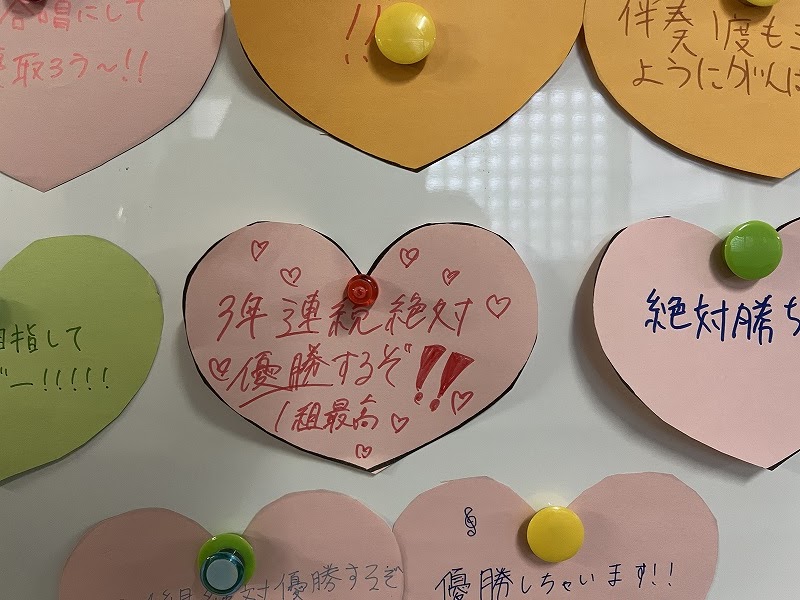 合唱にして
取ろう〜!!
!!
伴奏1度も
ように
指して
ー!!!!!
3年連続絶対
優勝するぞ!!
1組最高
絶対勝ち
絶対優勝するぞ
優勝しちゃいます!!